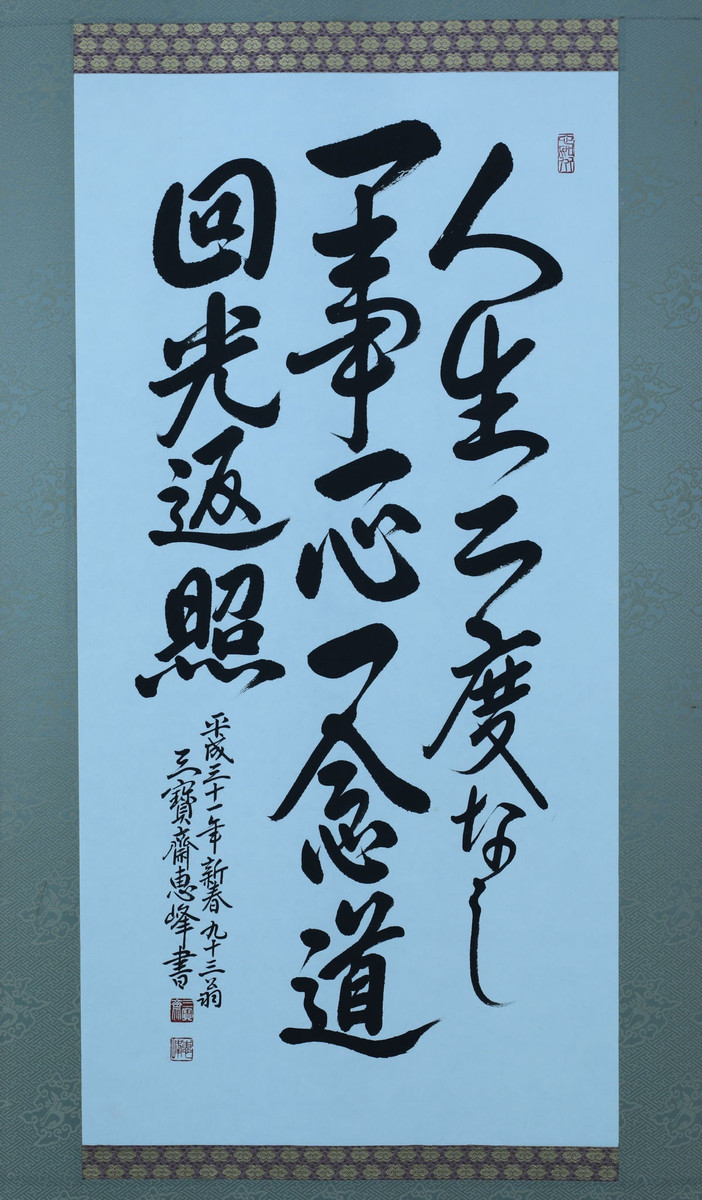 人生二度なし
一事一心一念道
回光返照
平成三十一年新春九十三翁
三寶齋惠峰書